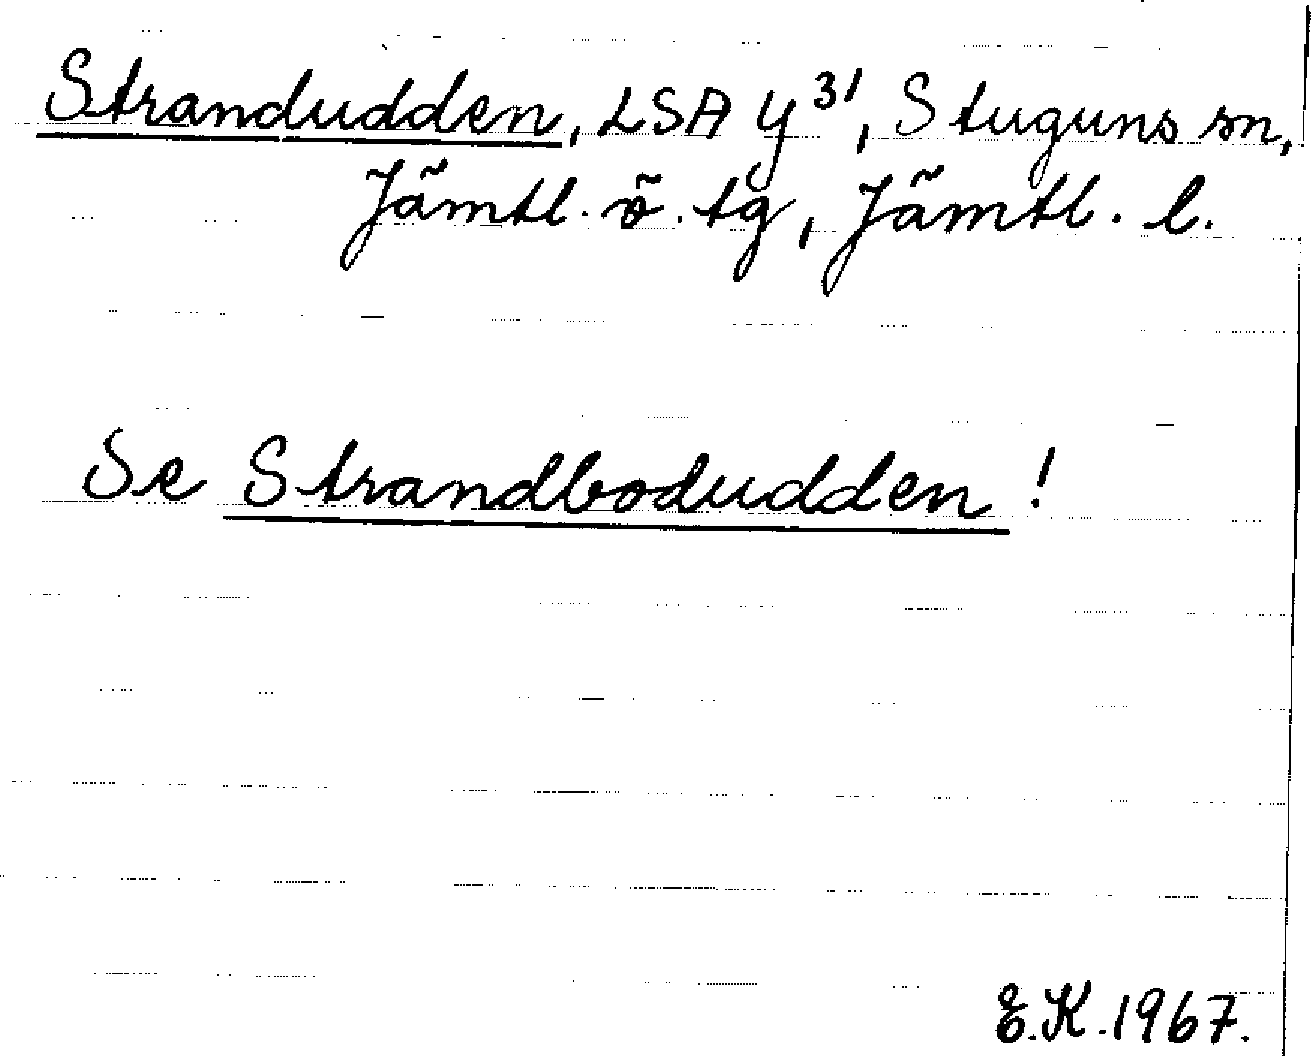 Strandudden, LSA y³¹, Stuguns sn,
Jämtl. ö. tg, Jämtl. l.
Se Strandbodudden!
E.K. 1967.